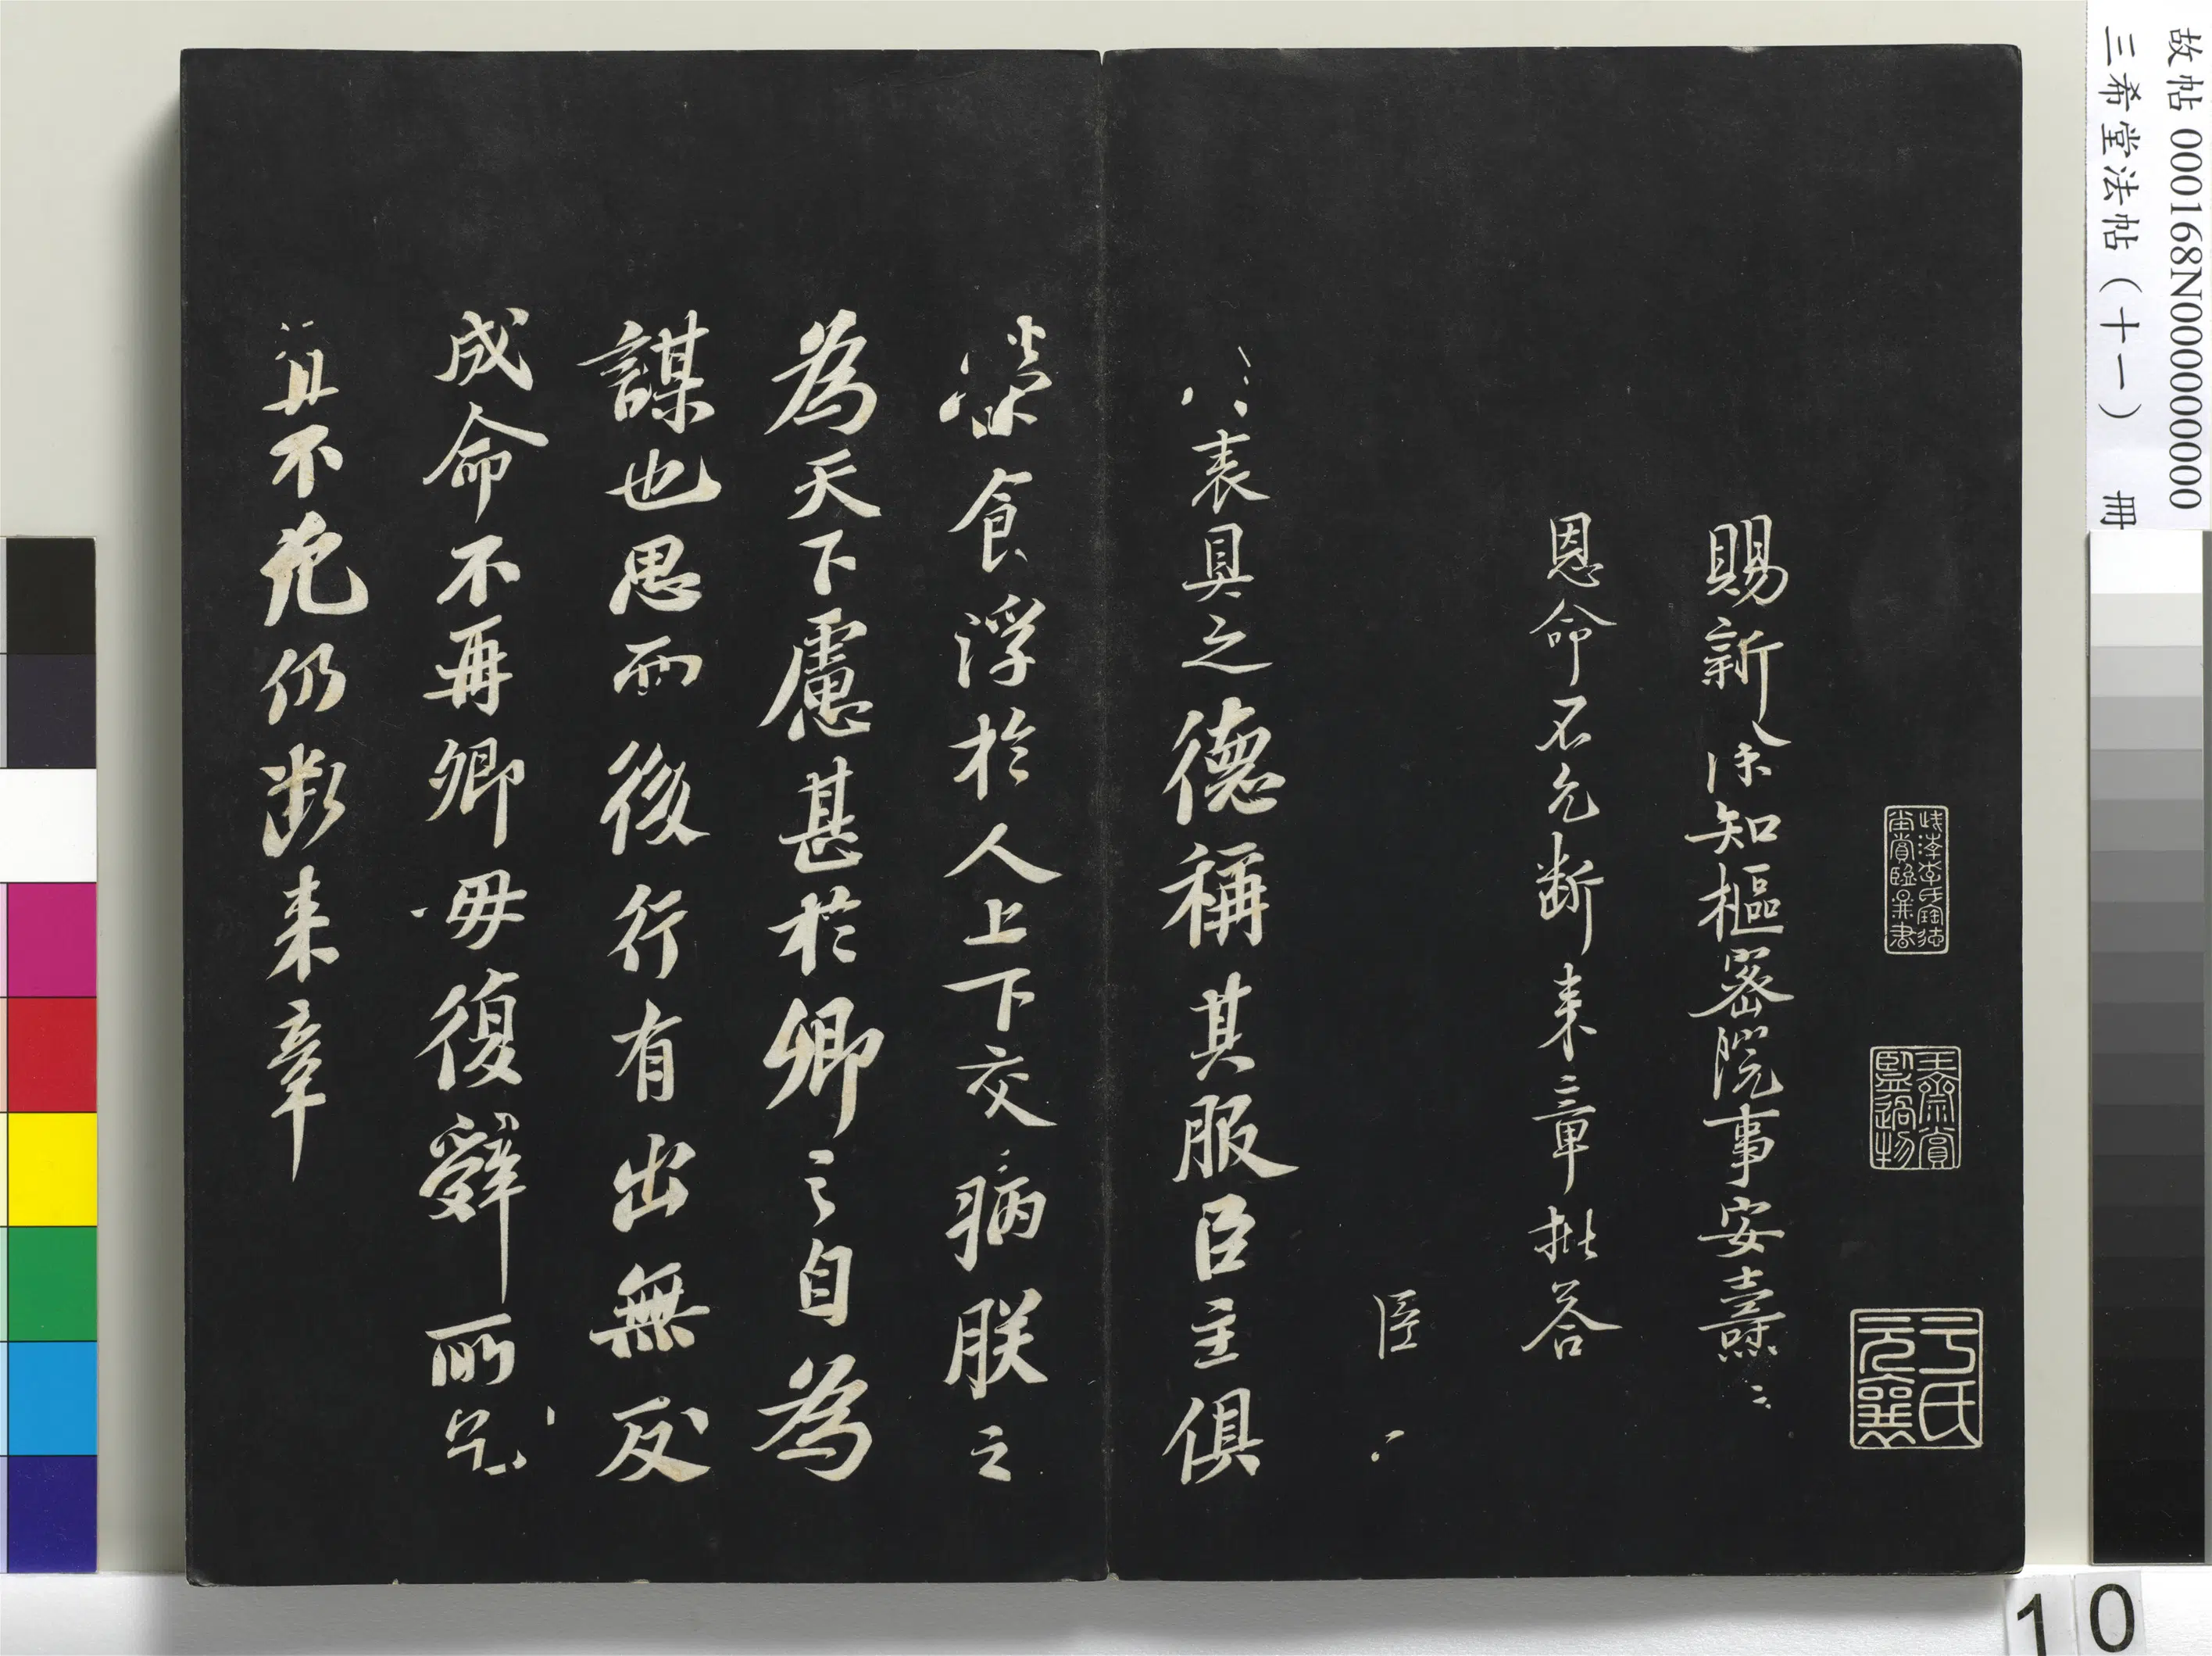 故帖 000168N000000000
三希堂法帖（十一） 冊
賜新除知樞密院事安燾
恩命不允斷来章批荅
臣
表具之德稱其服臣主俱
榮食浮於人上下交病朕之
為天下慮甚於卿之自為
謀也思而後行有出無反
成命不再卿毋復辭所乞
宜不允仍断来章
10